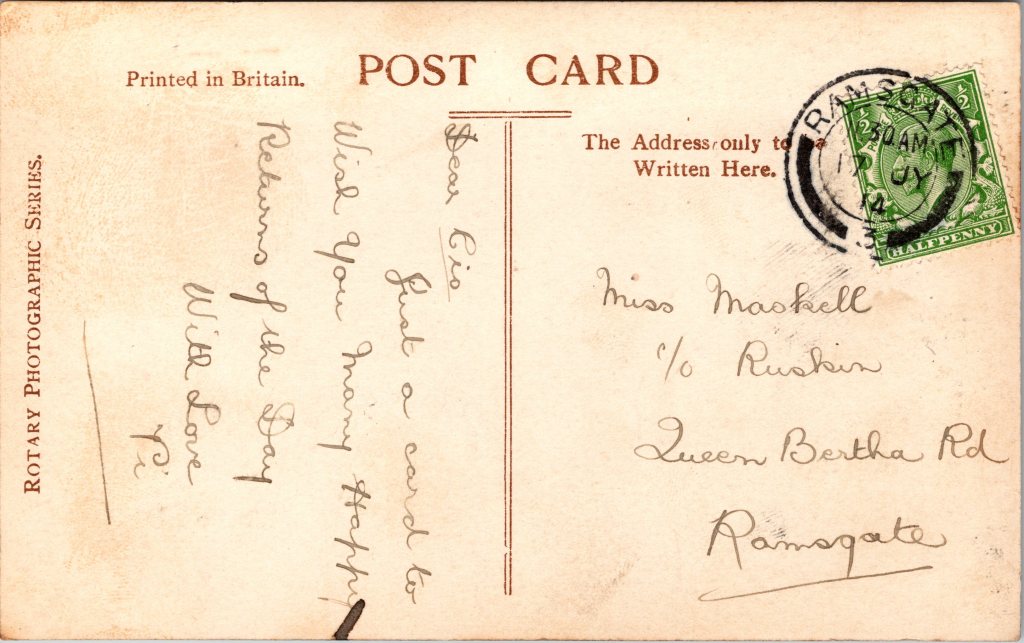 Printed in Britain.
POST CARD
ROTARY PHOTOGRAPHIC SERIES.
The Address only to
Written Here.
RAMSGATE
30 AM
JY
14
HALFPENNY
Dear Cio
Just a card to
Wish You Many Happy
Returns of the Day
With Love
Pi
Miss Maskell
c/o Ruskin
Queen Bertha Rd
Ramsgate